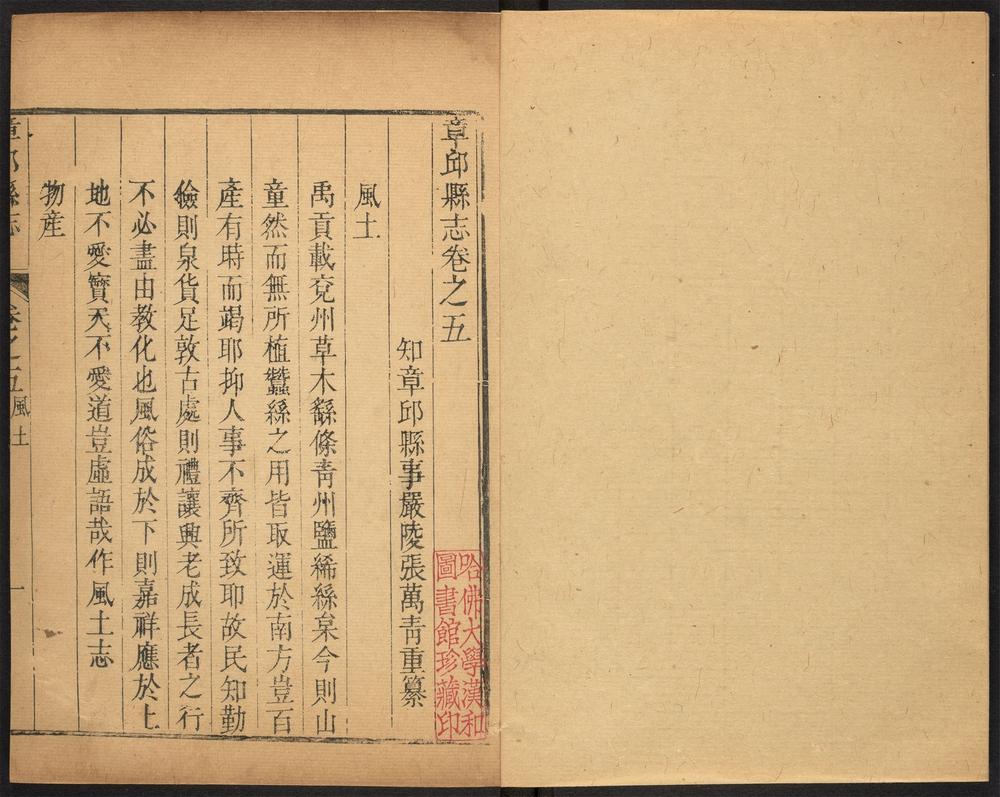 章邱縣志卷之五
知章邱縣事嚴陵張萬青重纂
風土
禹貢載兗州草木繇條青州鹽絺絲枲今則山
童然而無所植蠶絲之用皆取運於南方豈百
產有時而竭耶抑人事不齊所致耶故民知勤
儉則泉貨足敦古處則禮讓興老成長者之行
不必盡由教化也風俗成於下則嘉祥應於上
地不愛寶天不愛道豈虛語哉作風土志
物産
章邱縣志 卷之五 風土 一
哈佛大學漢和
圖書館珍藏印